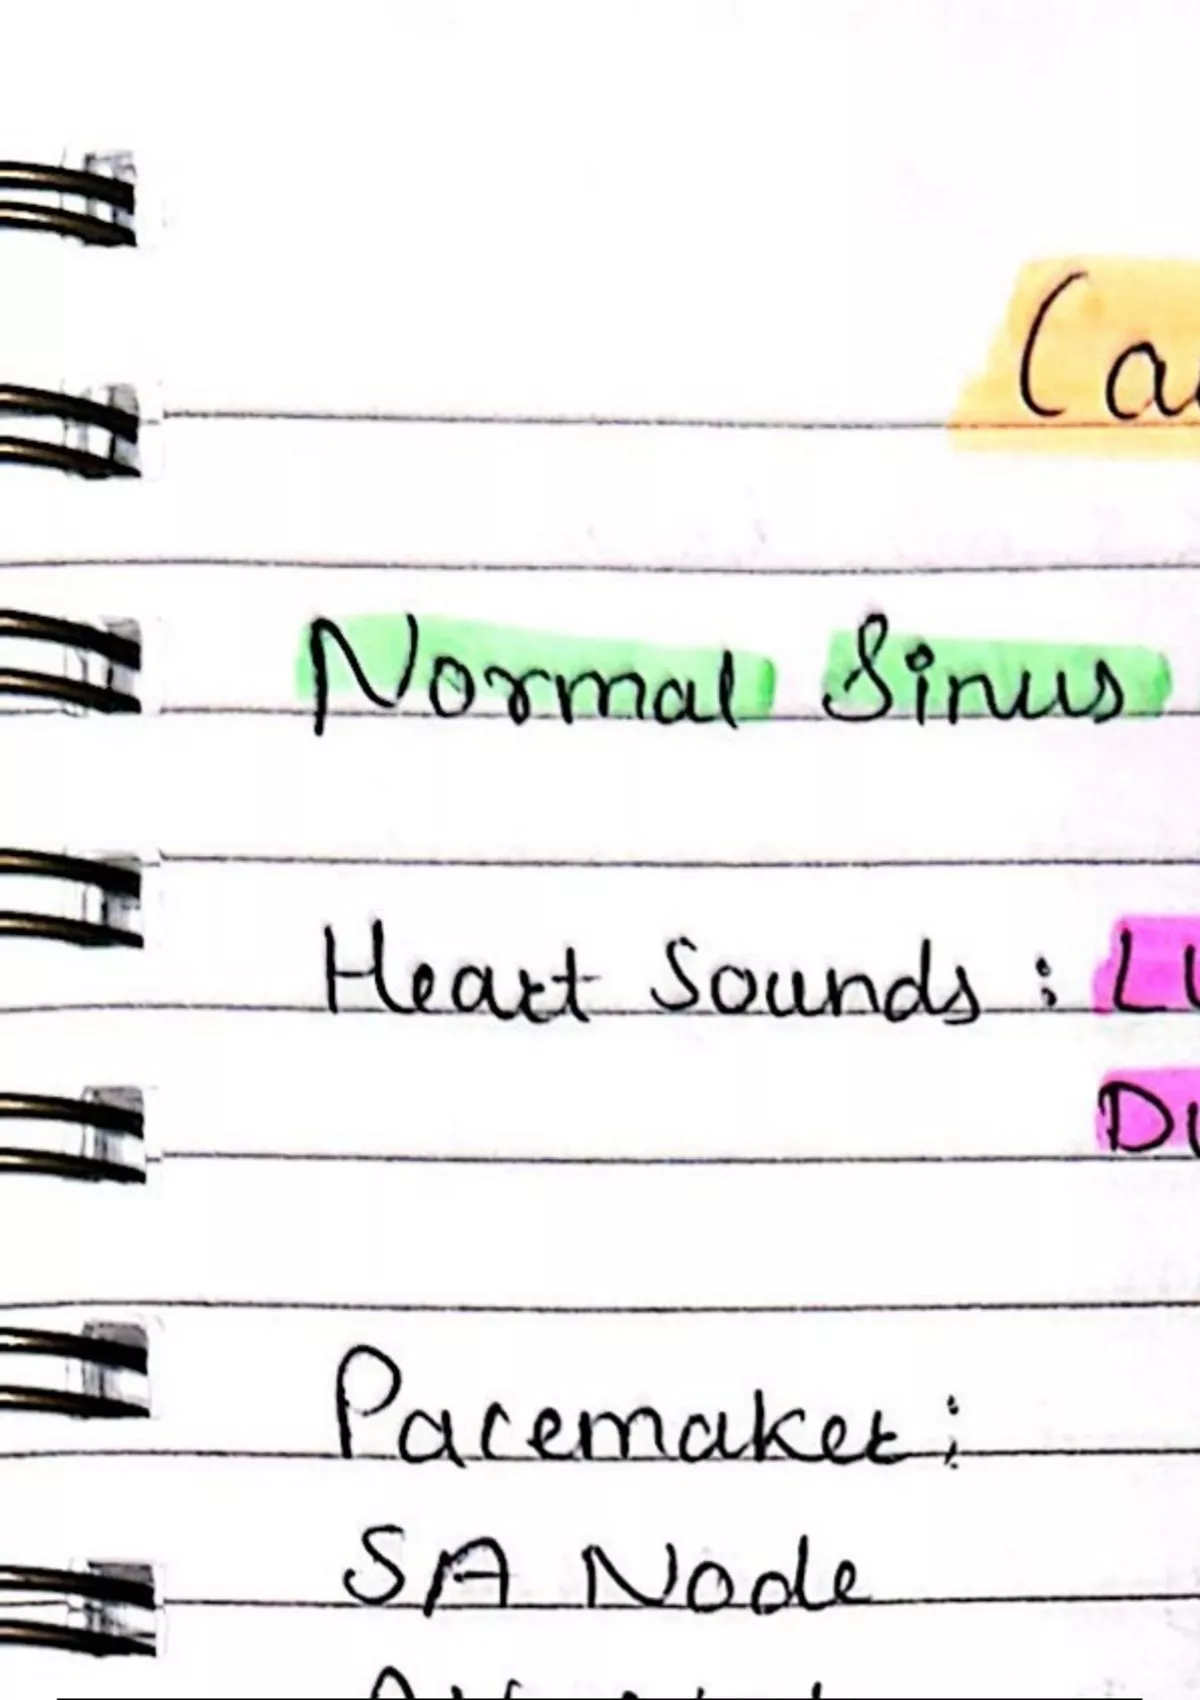 Ca
Normal Sinus
Heart Sounds : Lu
Du
Pacemaker :
SA Node